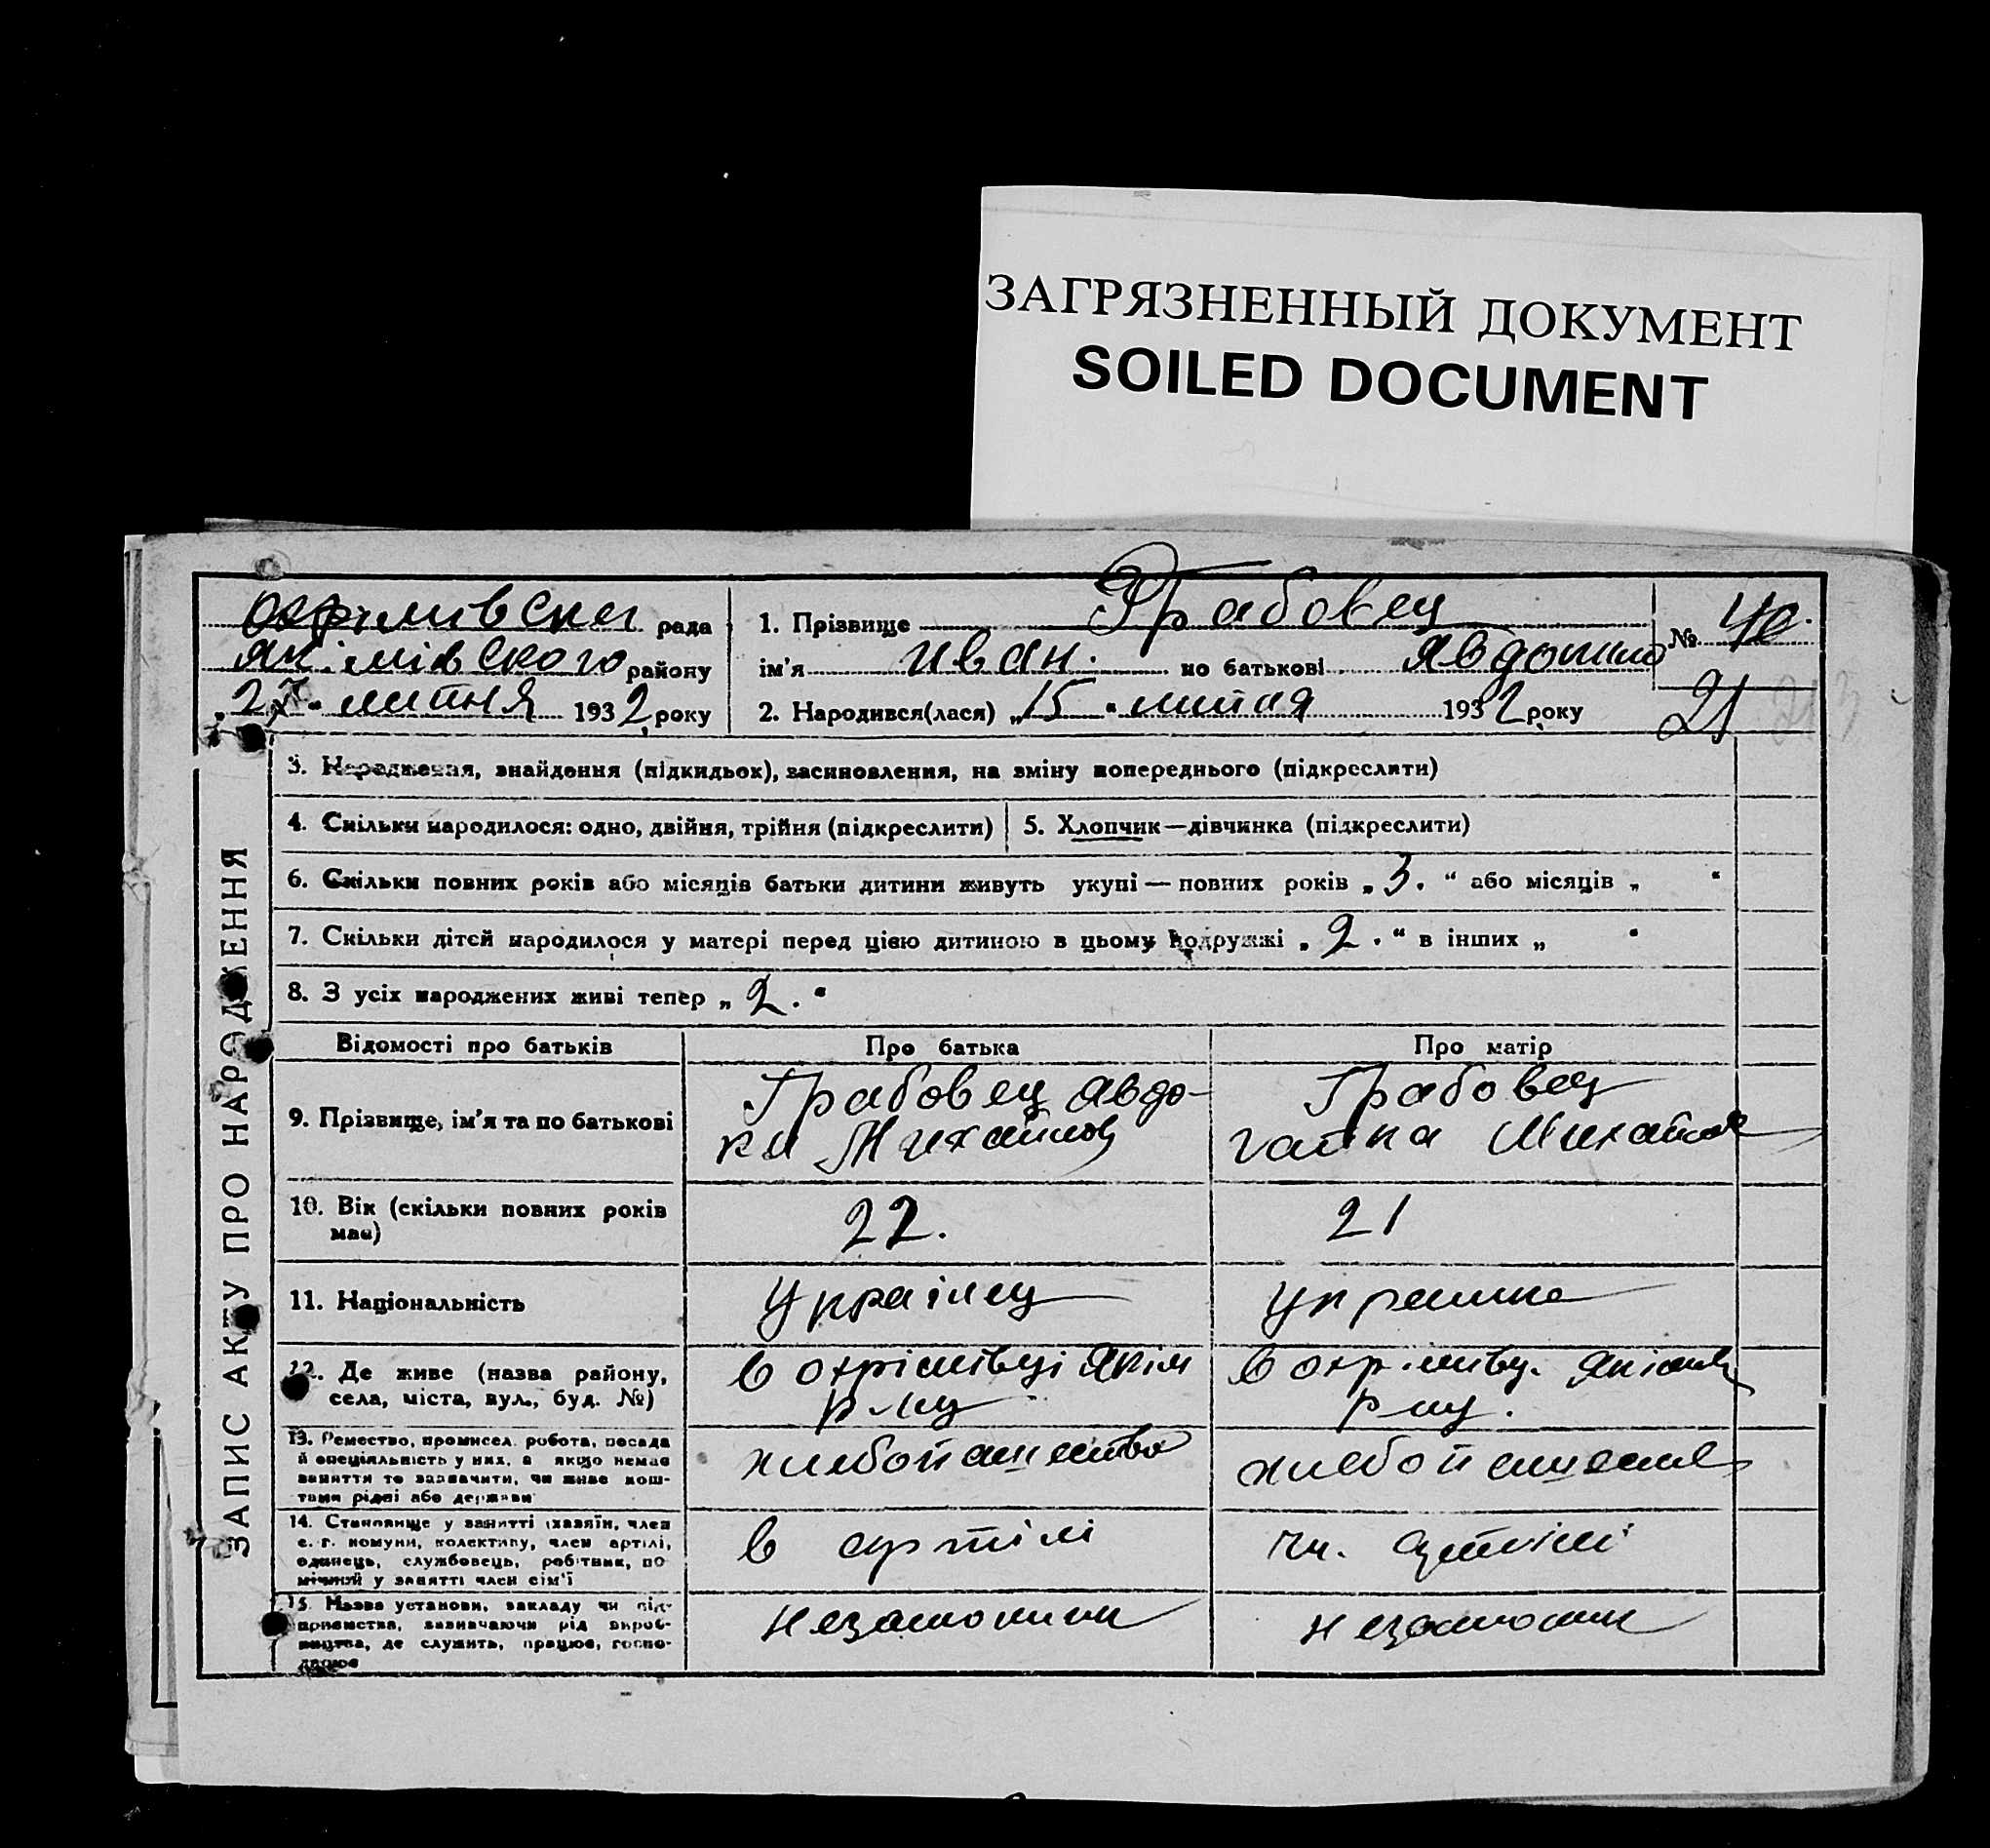 ЗАГРЯЗНЕННЫЙ ДОКУМЕНТ
SOILED DOCUMENT
Охрімівска рада
Якімівского району
„27“ липня 1932 року
1. Прізвище Грабовец
ім'я Иван. по батькові
2. Народився(лася) „15“ липня 1932 року
№ 40.
21
213
ЗАПИС АКТУ ПРО НАРОДЖЕННЯ
3. Народження, знайдення (підкидьок), засиновлення, на зміну попереднього (підкреслити)
4. Скільки народилося: одно, двійня, трійня (підкреслити)
5. Хлопчик—дівчинка (підкреслити)
6. Скільки повних років або місяців батьки дитини живуть укупі — повних років „3.“ або місяців „ “
7. Скільки дітей народилося у матері перед цією дитиною в цьому подружжі „2.“ в інших „ “
8. З усіх народжених живі тепер „2.“
Відомості про батьків
Про батька
Про матір
9. Прізвище, ім'я та по батькові
Грабовец Авдо-
ки Михайлов
Грабовец
Михайлов
10. Вік (скільки повних років
має)
22.
21
11. Національність
Українец
Украинка
12. Де живе (назва району,
села, міста, вул., буд. №)
в охрімівці Якім
р-ну
в охрімівц. Якімів
р-ну.
13. Ремество, промисел, робота, посада
й спеціяльність у них, а якщо немає
заняття то зазначити, чи живе кош-
тами рідні або держави
хлебопашество
14. Становище у занятті (хазяїн, член
с.-г. комуни, колективу, член артілі,
одинець, службовець, робітник, по-
мічний у занятті член сім'ї
в артілі
чл. артілі
15. Назва установи, закладу чи під-
приємства, зазначаючи рід вироб-
ництва, де служить, працює, госпо-
дарює
незаможник
незаможн